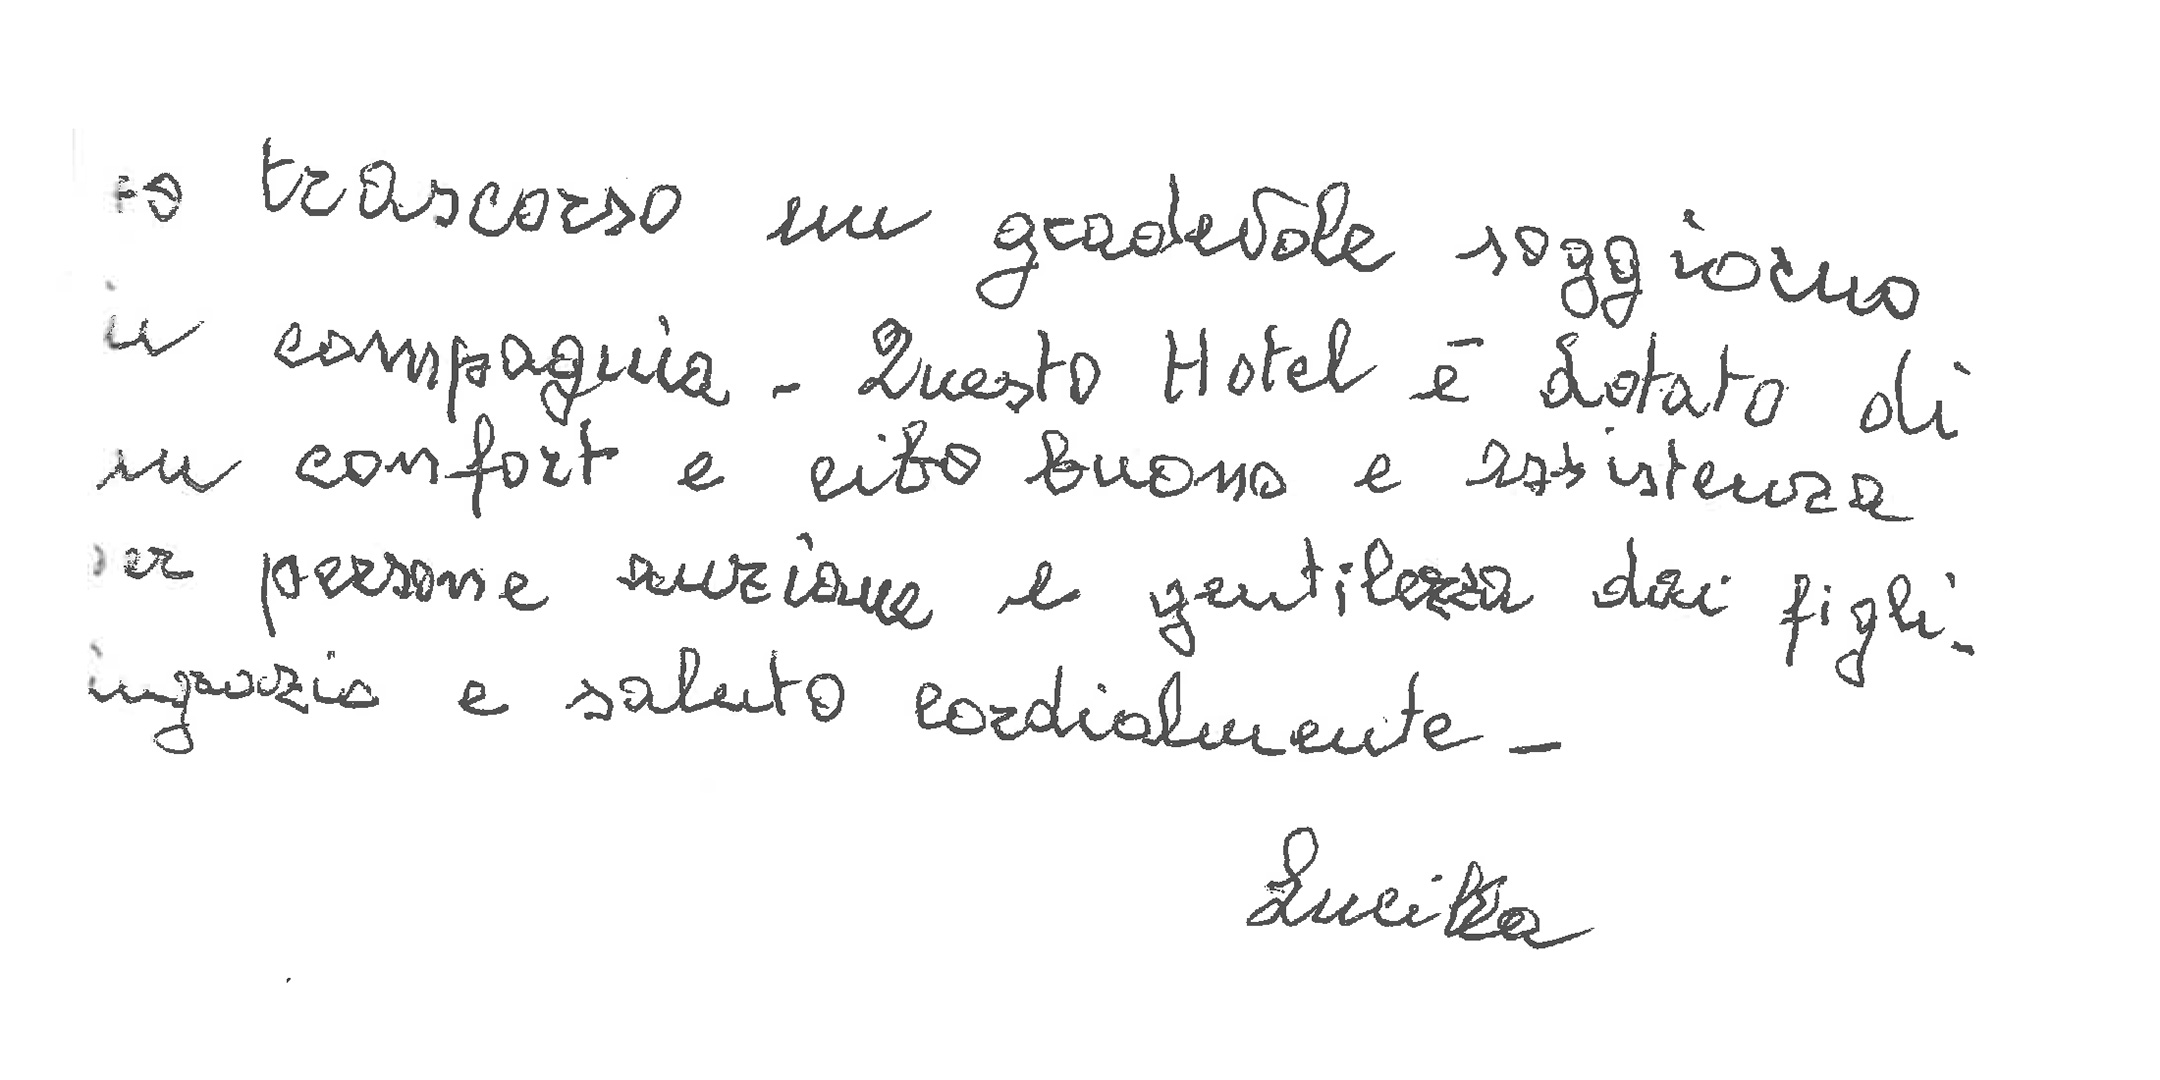 trascorso un gradevole soggiorno
in compagnia - Questo Hotel è dotato di
un confort e cibo buono e assistenza
per persone anziane e gentilezza dai figli -
ingrazio e saluto cordialmente -
Lucilla